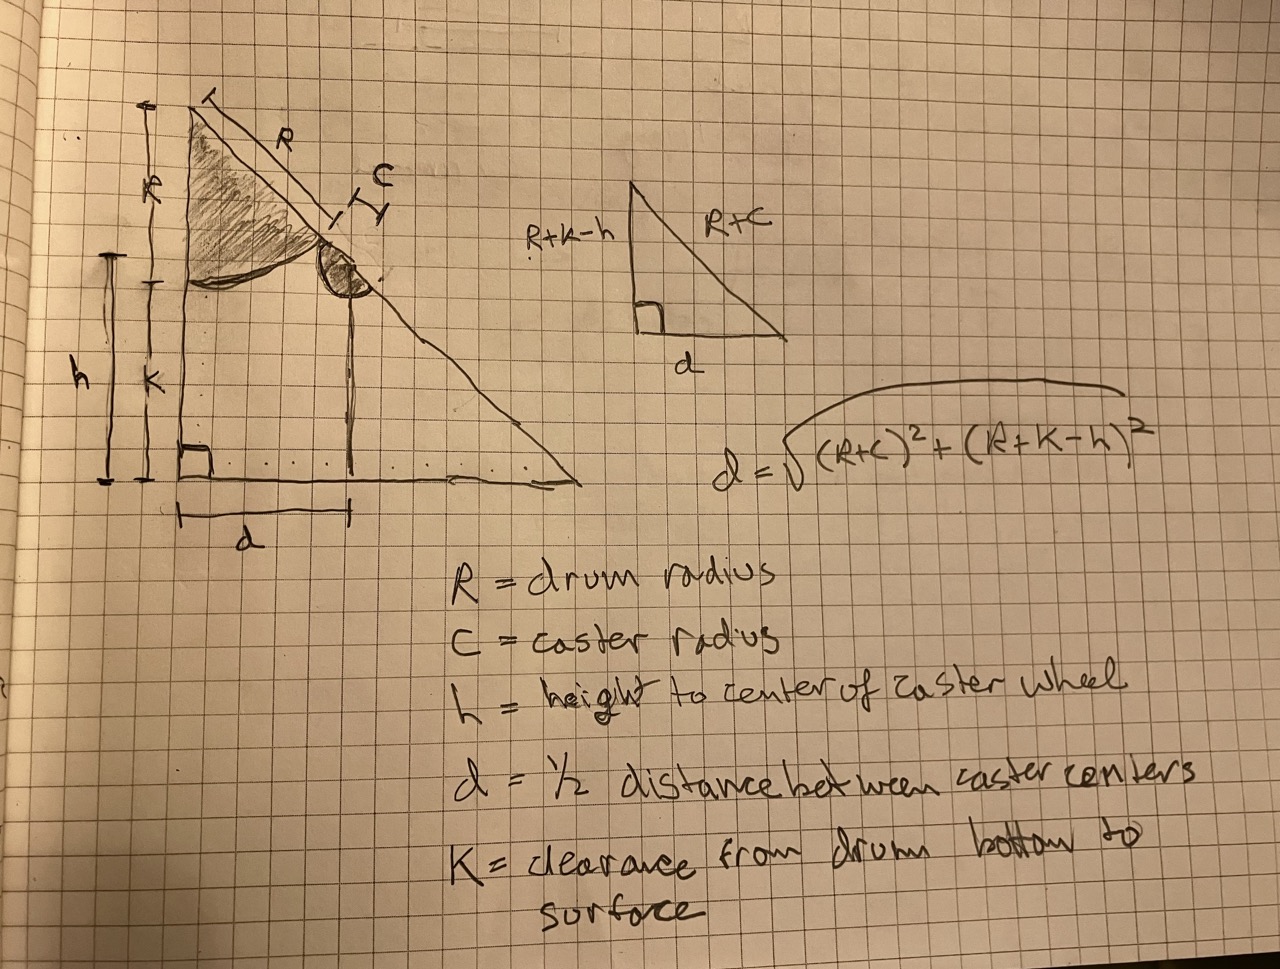 R
C
R
h
K
d
R+K-h
R+C
d
d = √(R+C)² + (R+K-h)²
R = drum radius
C = caster radius
h = height to center of caster wheel
d = ½ distance between caster centers
K = clearance from drum bottom to
surface